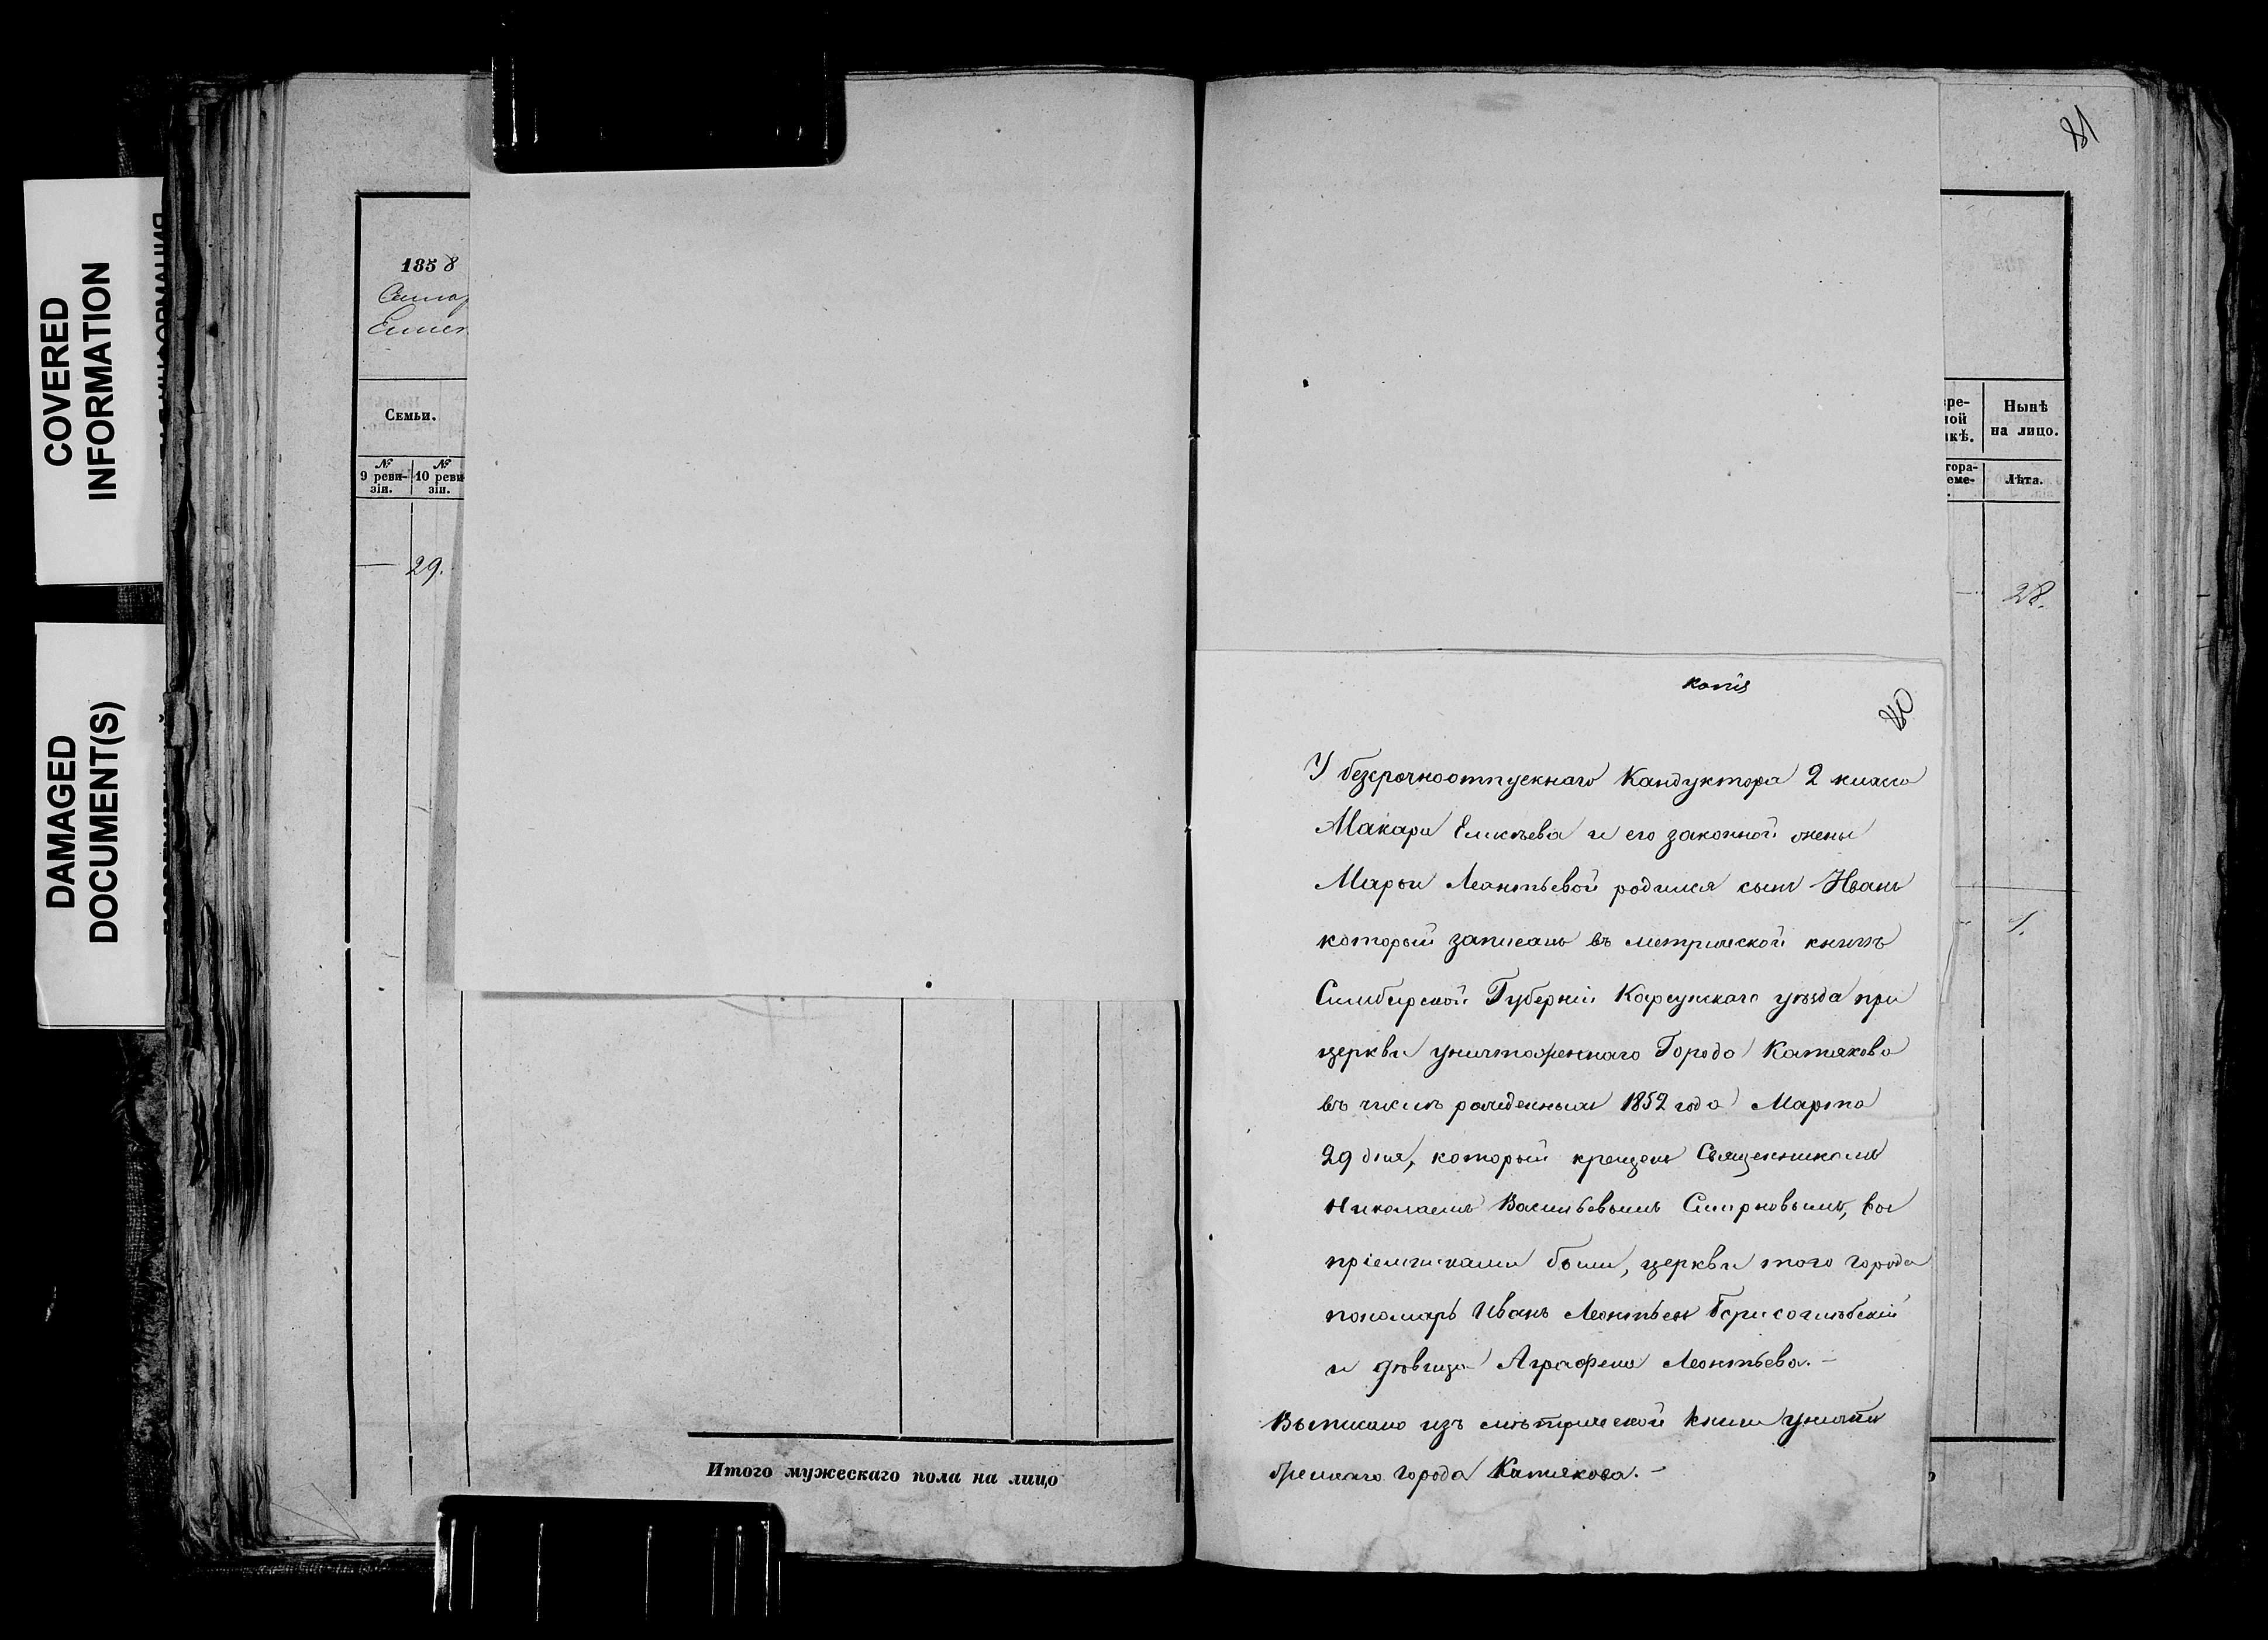 COVERED
INFORMATION
DAMAGED
DOCUMENT(S)
1858
Семьи.
№ 9 ревизіи.
№ 10 ревизіи.
29.
Итого мужескаго пола на лицо
81
Нынѣ
на лицо.
Лѣта.
28.
1.
копія
80
У безсрочноотпускнаго Кандуктора 2 класса
Макара Елисѣева и его законной жены
Марьи Леонтьевой родился сынъ Иванъ
который записанъ въ метрической книгѣ
Симбирской Губерніи Карсунскаго уѣзда при
церкви уничтоженнаго Города Катякова
въ числѣ рожденныхъ 1852 года Марта
29 дня, который крещенъ Священникомъ
Николаемъ Васильевымъ Смирновымъ, вос
пріемниками были, церкви того города
пономарь Иванъ Леонтьевъ Борисоглѣбскій
и дѣвица Аграфена Леонтьева.-
Выписано изъ мѣтрической книги уничто
женнаго города Катякова.-